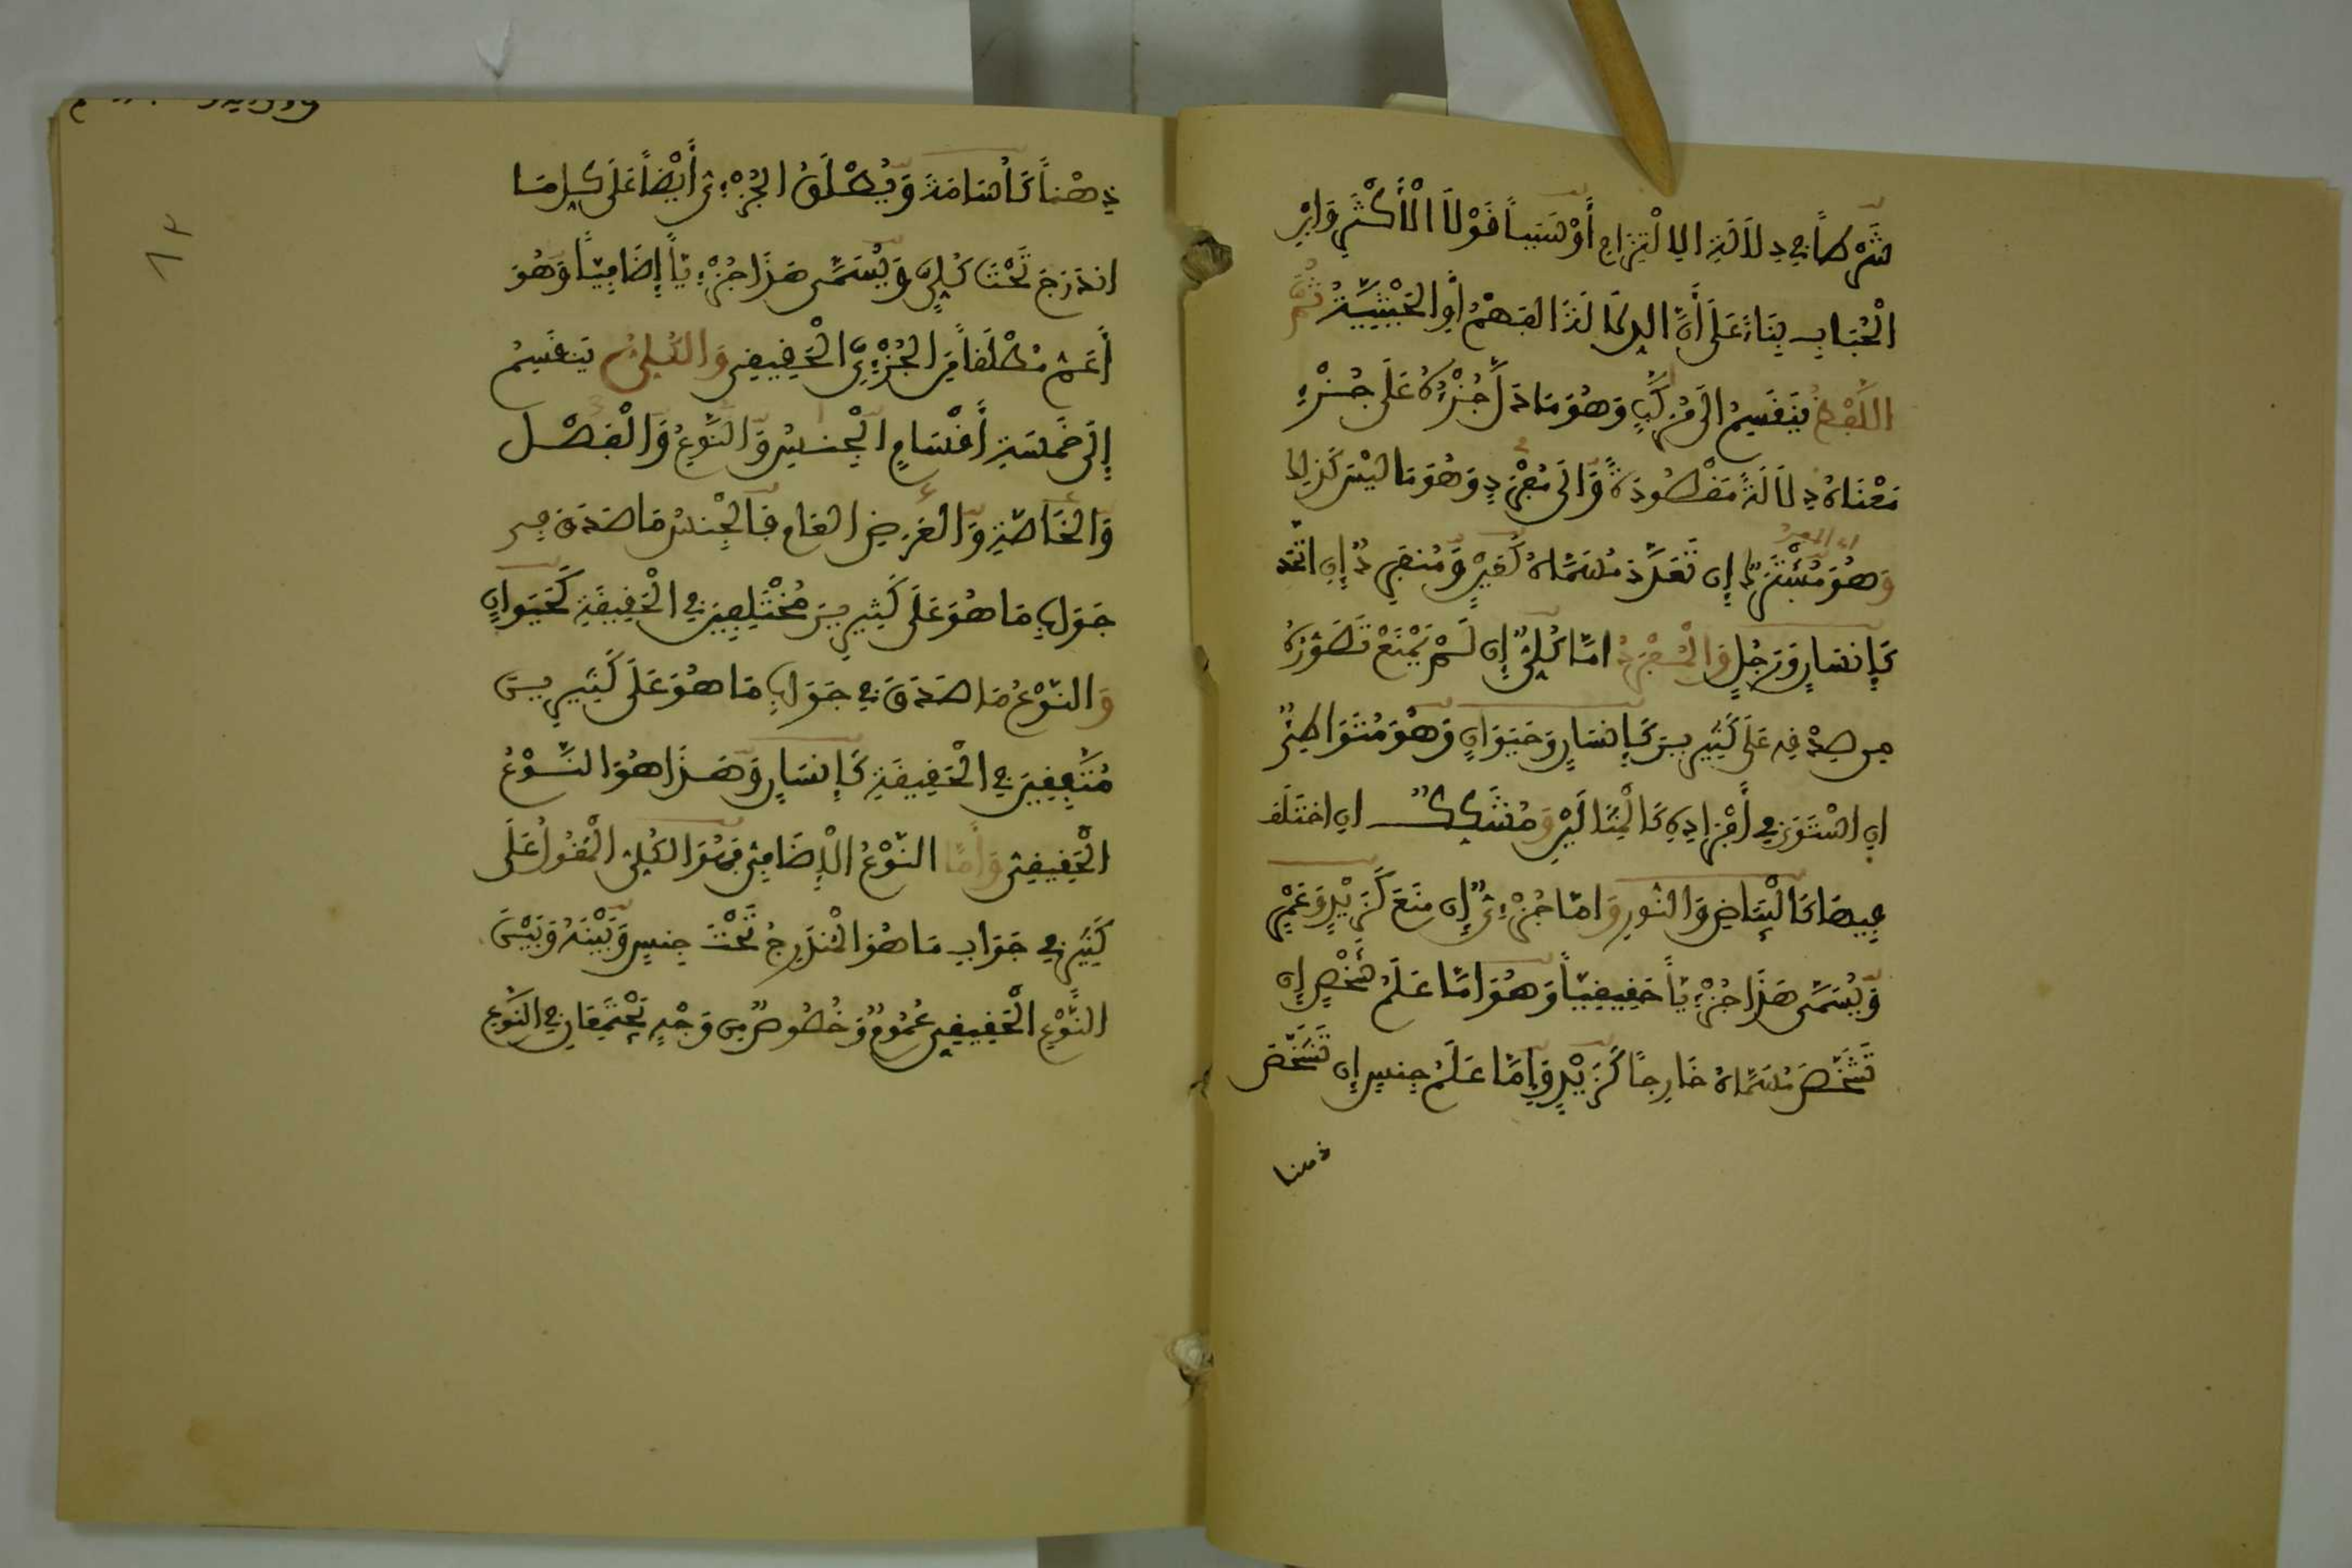 شَرْطاً فِي دِلَالَةِ الِالْتِزَامِ أَوْ سَبَباً قَوْلَا الْأَكْثَرِ وَابْنِ
الْحُبَابِ بِنَاءً عَلَى أَنَّ الدِّلَالَةَ الفَهْمُ أَوِ الْحَيْثِيَّةُ ثُمَّ
اللَّفْظُ يَنقَسِمُ إلَى مُرَكَّبٍ وَهُوَ مَا دَلَّ جُزْءُهُ عَلَى جُزْءِ
مَعْنَاهُ دِلَالَةً مَقْصُودَةً وَّالَى مُفْرَدٍ وَهُوَ مَا لَيْسَ كَذَلِكَ
وَهُوَ مُشْتَرَكٌ إِن تَعَدَّدَ مُسَمَّاهُ كَعَيْنٍ وَّمُنفَرِدٌ إِنِ اتَّحَدَ
أي المفرد
كَإِنسَانٍ وَرَجُلٍ وَالْمُفْرَدُ امَّا كُلِّيٌّ إِن لَّمْ يَمْنَعْ تَصَوُّرُهُ
مِن صِدْقِهِ عَلَى كَثِيرِينَ كَإِنسَانٍ وَحَيَوَانٍ وَهُوَ مُتَوَاطِئٌ
انِ اسْتَوَى فِي أَفْرَادِهِ كَالْمِثَالَيْنِ وَمُشَكِّكٌ انِ اخْتَلَفَ
فِيهَا كَالْبَيَاضِ وَالنُّورِ وَامَّا جُزْءِيٌّ إِن مَنَعَ كَزَيْدٍ وَعَمْرٍ
وَّيُسَمَّى هَذَا جُزْءِيّاً حَقِيقِيّاً وَهُوَ امَّا عَلَمُ شَخْصٍ إِن
تَشَخَّصَ مُسَمَّاهُ خَارِجاً كَزَيْدٍ وَّإِمَّا عَلَمُ جِنسٍ إِن تَشَخَّصَ
ذهنا
ذِهْناً كَأُسَامَةَ وَيُطْلَقُ الجُزْءِيُّ أَيْضاً عَلَى كُلِّ مَا
اندَرَجَ تَحْتَ كُلِّيٍّ وَيُسَمَّى هَذَا جُزْءِيّاً إِضَافِيّاً وَهُوَ
أَعَمُّ مُطْلَقاً مِّنَ الجُزْءِيِّ الْحَقِيقِي وَالكُلِّيُّ يَنقَسِمُ
إِلَى خَمْسَةِ أَقْسَامٍ الْجِنسِ وَالنَّوْعِ وَالْفَصْلِ
وَالْخَاصَّةِ وَالْعَرَضِ العَامِ فَالْجِنسُ مَا صَدَقَ فِي
جَوَابِ مَا هُوَ عَلَى كَثِيرِينَ مُخْتَلِفِينَ فِي الْحَقِيقَةِ كَحَيَوَانٍ
وَالنَّوْعُ مَا صَدَقَ فِي جَوَابِ مَا هُوَ عَلَى كَثِيرِينَ
مُتَّفِقِينَ فِي الْحَقِيقَةِ كَإِنسَانٍ وَهَذَا هُوَ النَّوْعُ
الْحَقِيقِيُّ وَأَمَّا النَّوْعُ الْإِضَافِيُّ فَهُوَ الكُلِّيُّ الْمَقُولُ عَلَى
كَثِيرِينَ فِي جَوَابِ مَا هُوَ الْمُندَرِجُ تَحْتَ جِنسٍ وَّبَيْنَهُ وَبَيْنَ
النَّوْعِ الْحَقِيقِيِّ عُمُومٌ وَخُصُوصٌ مِّن وَجْهٍ يَجْتَمِعَانِ فِي النَّوْعِ
٨٣